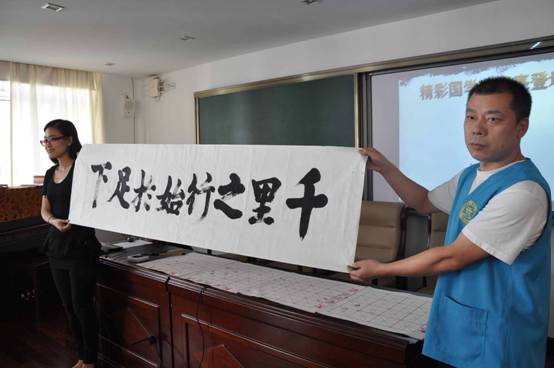 千里之行始於足下
精彩国学